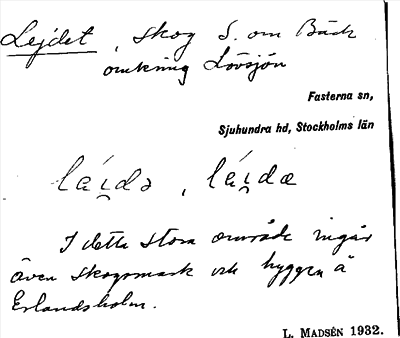 Lejdet, skog S. om Bäck
omkring Lövsjön
Fasterna sn,
Sjuhundra hd, Stockholms län
lái̯də, léi̯dæ
I detta stora område ingår
även skogsmark och hyggen å
Erlandsholm.
L. MADSÉN 1932.